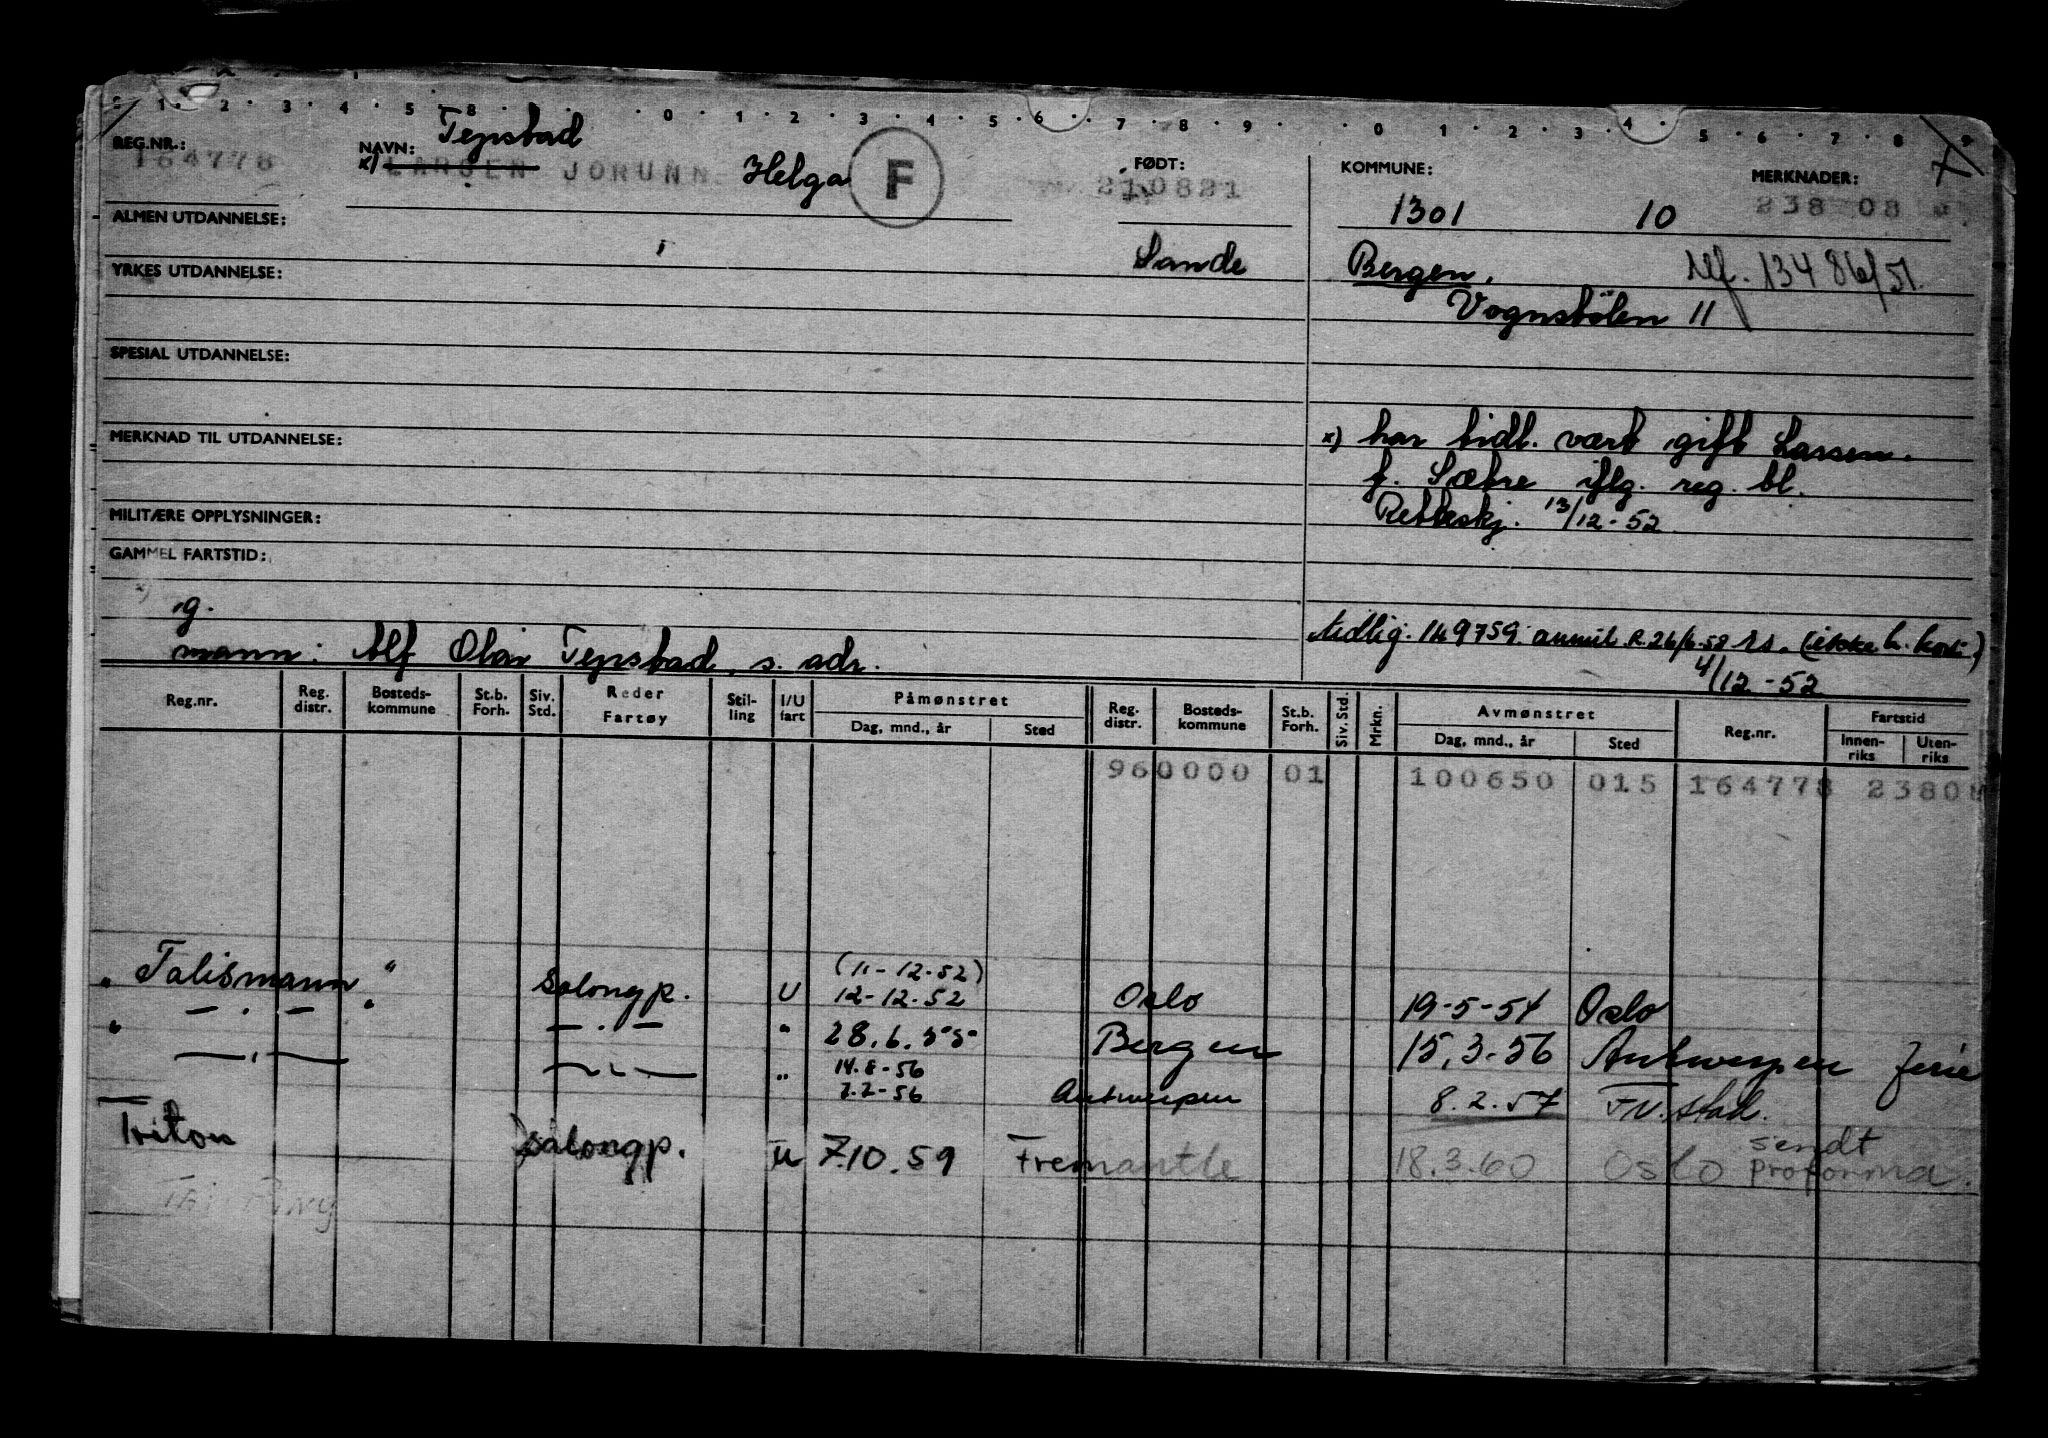 1 2 3 4 5 8 0 1 2 3 4 5 6 7 8 9 0 1 2 3 4 5 6 7 8 9
REG.NR.: NAVN: Tepstad FØDT: KOMMUNE: MERKNADER: 7
164778 x) LARSEN JORUNN Helga F 210821 1301 10 238 08
ALMEN UTDANNELSE:
Sande Bergen. 13486/51.
YRKES UTDANNELSE:
Vognstølen 11
SPESIAL UTDANNELSE:
MERKNAD TIL UTDANNELSE:
x) har tidl. vært gift Larsen.
f. Sætre iflg. reg. bl.
MILITÆRE OPPLYSNINGER: Retteskj. 13/12-52
GAMMEL FARTSTID:
g.
Midlig. 149759. annul. R. 26/6-58 (ikke h. kort.)
mann: Alf Olav Tepstad, s. adr.
4/12-52
Reg.nr. Reg. distr. Bosteds-kommune St.b. Forh. Siv. Std. Reder Fartøy Stil-ling I/U fart Påmønstret Dag, mnd., år Sted Reg. distr. Bosteds-kommune St.b. Forh. Siv. Std. Mrkn. Avmønstret Dag, mnd., år Sted Reg.nr. Fartstid Innen-riks Uten-riks
960000 01 100650 015 164778 23808
(11-12-52)
"Talismann" Salongp. U 12-12-52 Oslo 19-5-54 Oslo
" — . — " — . — " 28.6.55 Bergen 15.3-56 Antwerpen Ferie
14.8-56
" 7.7-56 Antwerpen 8.2.57 Stad.
Triton Salongp. U 7.10.59 Fremantle 18.3.60 Oslo sendt proforma.
Tai Ping